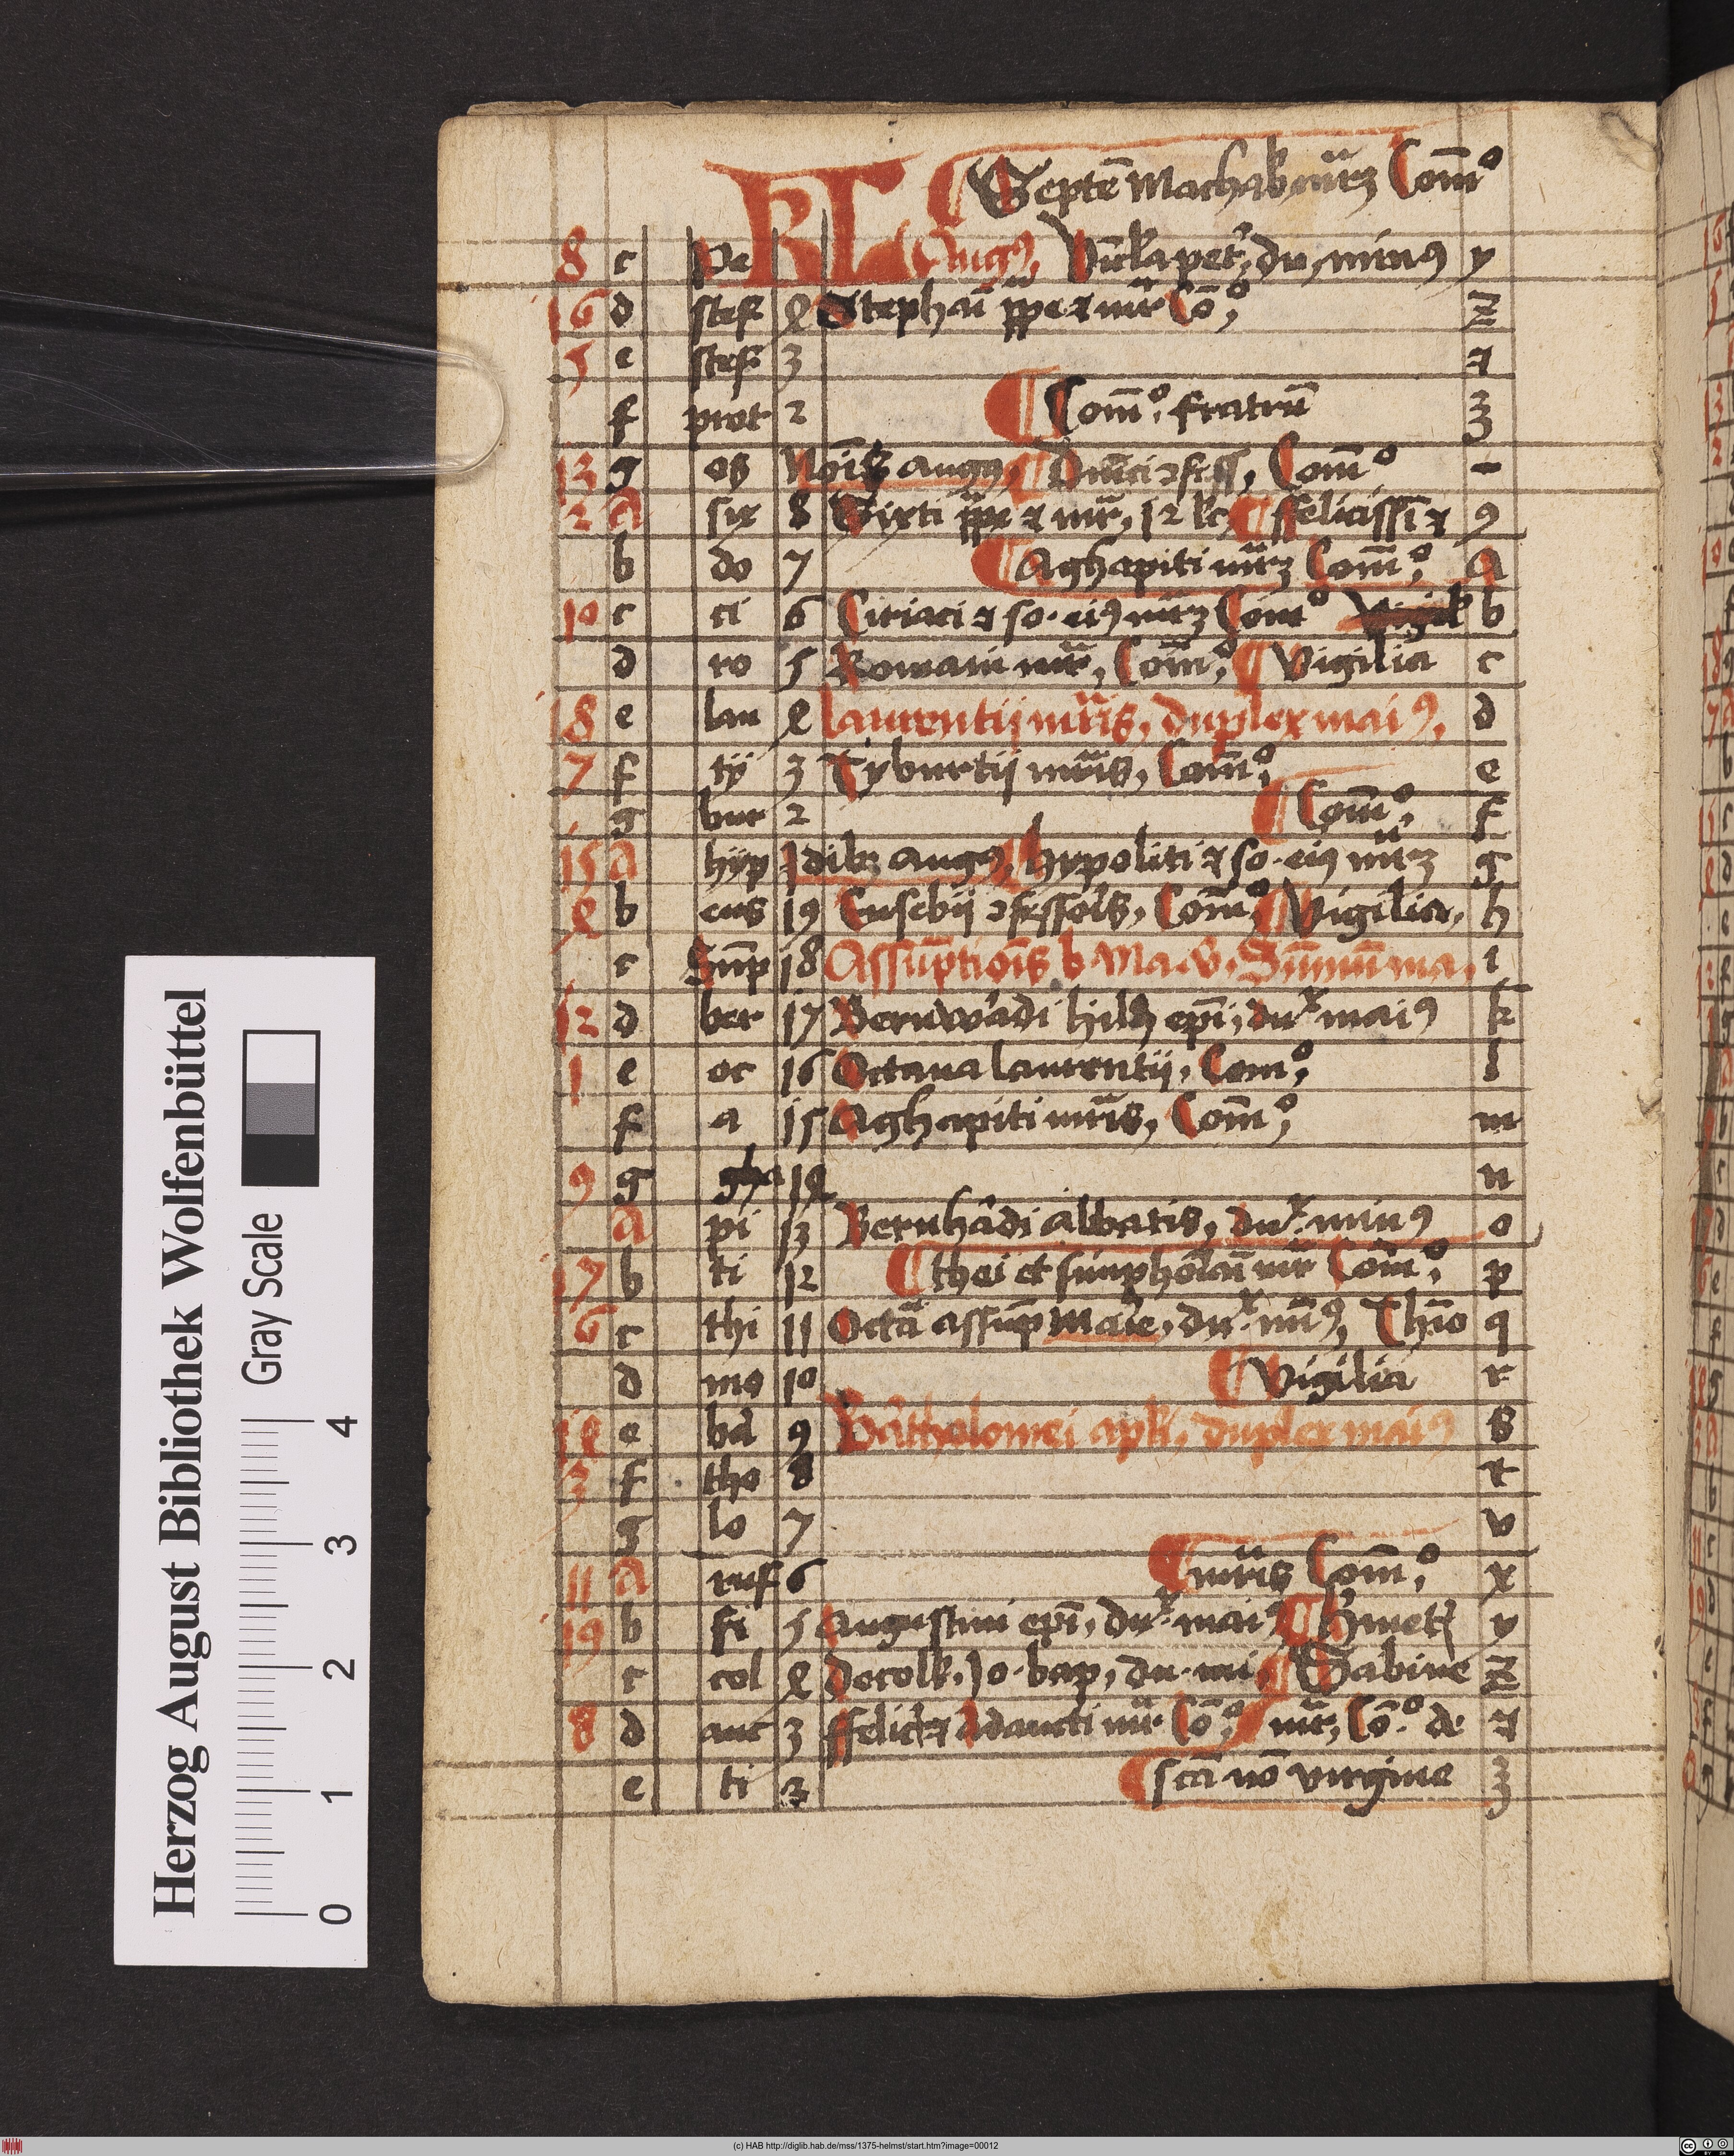 Septē Machab mr̄ꝫ Com̄º
8 c Pe KL Augꝰ, Vīcl'a pet', du, minꝰ y
16 d stef 4 Stephaī pp̄e ⁊ mr̄ Cō,º z
5 e stef 3 ⁊
f prot 2 Com̄º, fratrū 3
13 g os Nōis augꝰ, Dn̄ici ꝯfess, Com̄º -
2 A six 8 Sixti pp̄e ⁊ mr̄, 12 lc, ffelicissī ⁊ 9
b do 7 Aghapiti mr̄ꝫ Com̄,º A
10 c ci 6 Ciriaci ⁊ so. eiꝰ mr̄ꝫ Com̄º b
d ro 5 Romani mr̄, Com̄,º Vigilia c
18 e lau 4 Laurentii mr̄is, duplex maiꝰ, d
7 f ty 3 Tyburtii mr̄is, Com̄,º e
g bur 2 Com̄,º f
15 A hyp Idibꝫ augꝰ, Hypoliti ⁊ so. eiꝰ mr̄ꝫ g
4 b eus 19 Eusebii ꝯfessoīs, Com̄º, Vigilia, h
c Sūp 18 Assūptiois b Ma. v. Sūmū ma, i
12 d ber 17 Bernwādi hild epī, duˣ maiꝰ k
1 e oc 16 Octava laurentii, Com̄,º l
f a 15 Aghapiti mr̄is, Com̄,º m
9 g gha 14 n
A pi 13 Bernhādi abbatis, duˣ. minꝰ o
17 b ti 12 thei et simphōīāi mr̄ Com̄,º p
6 c thi 11 Octā assūp marie, duˣ. mīꝰ, Thīo q
d mo 10 Vigilia r
14 e ba 9 Bātholomei apl'i, duplex maiꝰ s
3 f tho 8 t
g lo 7 v
11 A ruf 6 mr̄is Com̄,º x
19 b fi 5 Augustini epī, duˣ. maiꝰ Hmetꝭ y
c col 4 decoll'. Jo. bap, du. mi, Sabine z
8 d auc 3 ffelicꝭ ⁊ Adaucti mr̄ Cō,º mr̄, Cō.º de ⁊
e ti 2 sctā nō virgine 3
Herzog August Bibliothek Wolfenbüttel
Gray Scale
0 1 2 3 4
(c) HAB http://diglib.hab.de/mss/1375-helmst/start.htm?image=00012